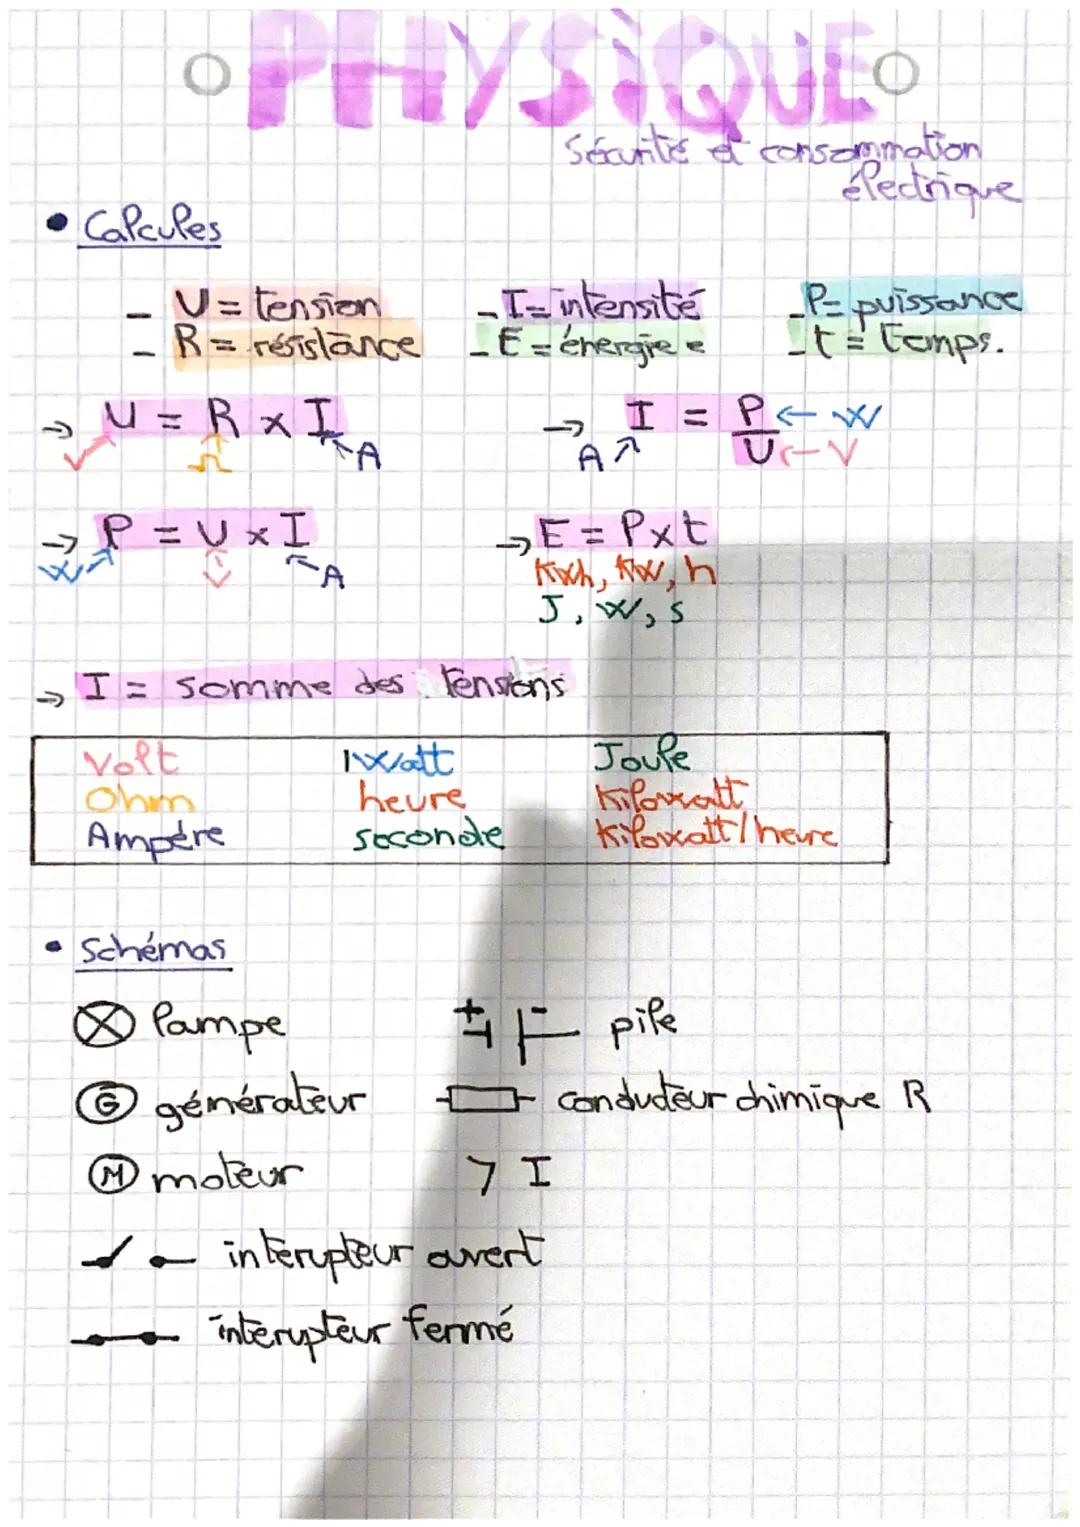 PHYSIQUE
Sécurités et consommation
électrique
• Calcules
- U = tension - I = intensité - P = puissance
- R = résistance - E = énergie e - t = temps.
→ U = R x I → I = P ← W
V Ω A A U ← V
→ P = U x I → E = P x t
W V A Kwh, Kw, h
J, W, s
→ I = somme des tensions
Volt Watt Joule
Ohm heure Kilowatt
Ampére seconde Kilowatt/heure
• Schémas
lampe + - pile
G générateur conducteur chimique R
M moteur > I
interupteur ouvert
interupteur fermé